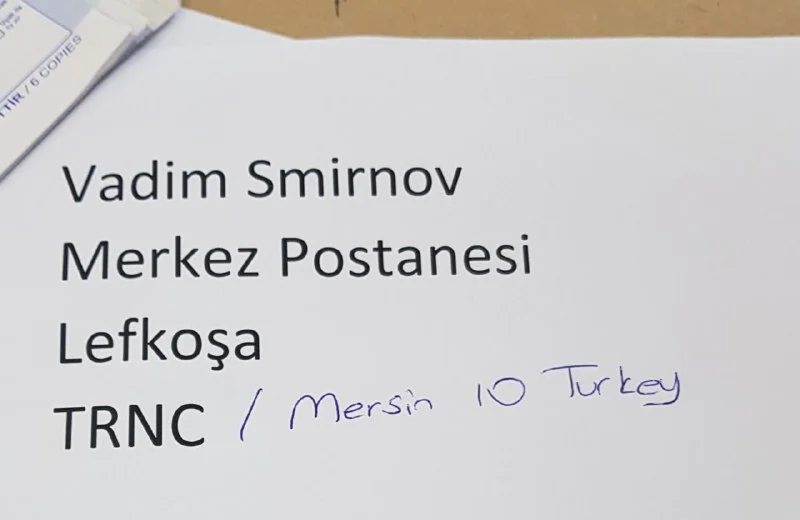 TTİR / 6 COPIES
Vadim Smirnov
Merkez Postanesi
Lefkoşa
TRNC / Mersin 10 Turkey